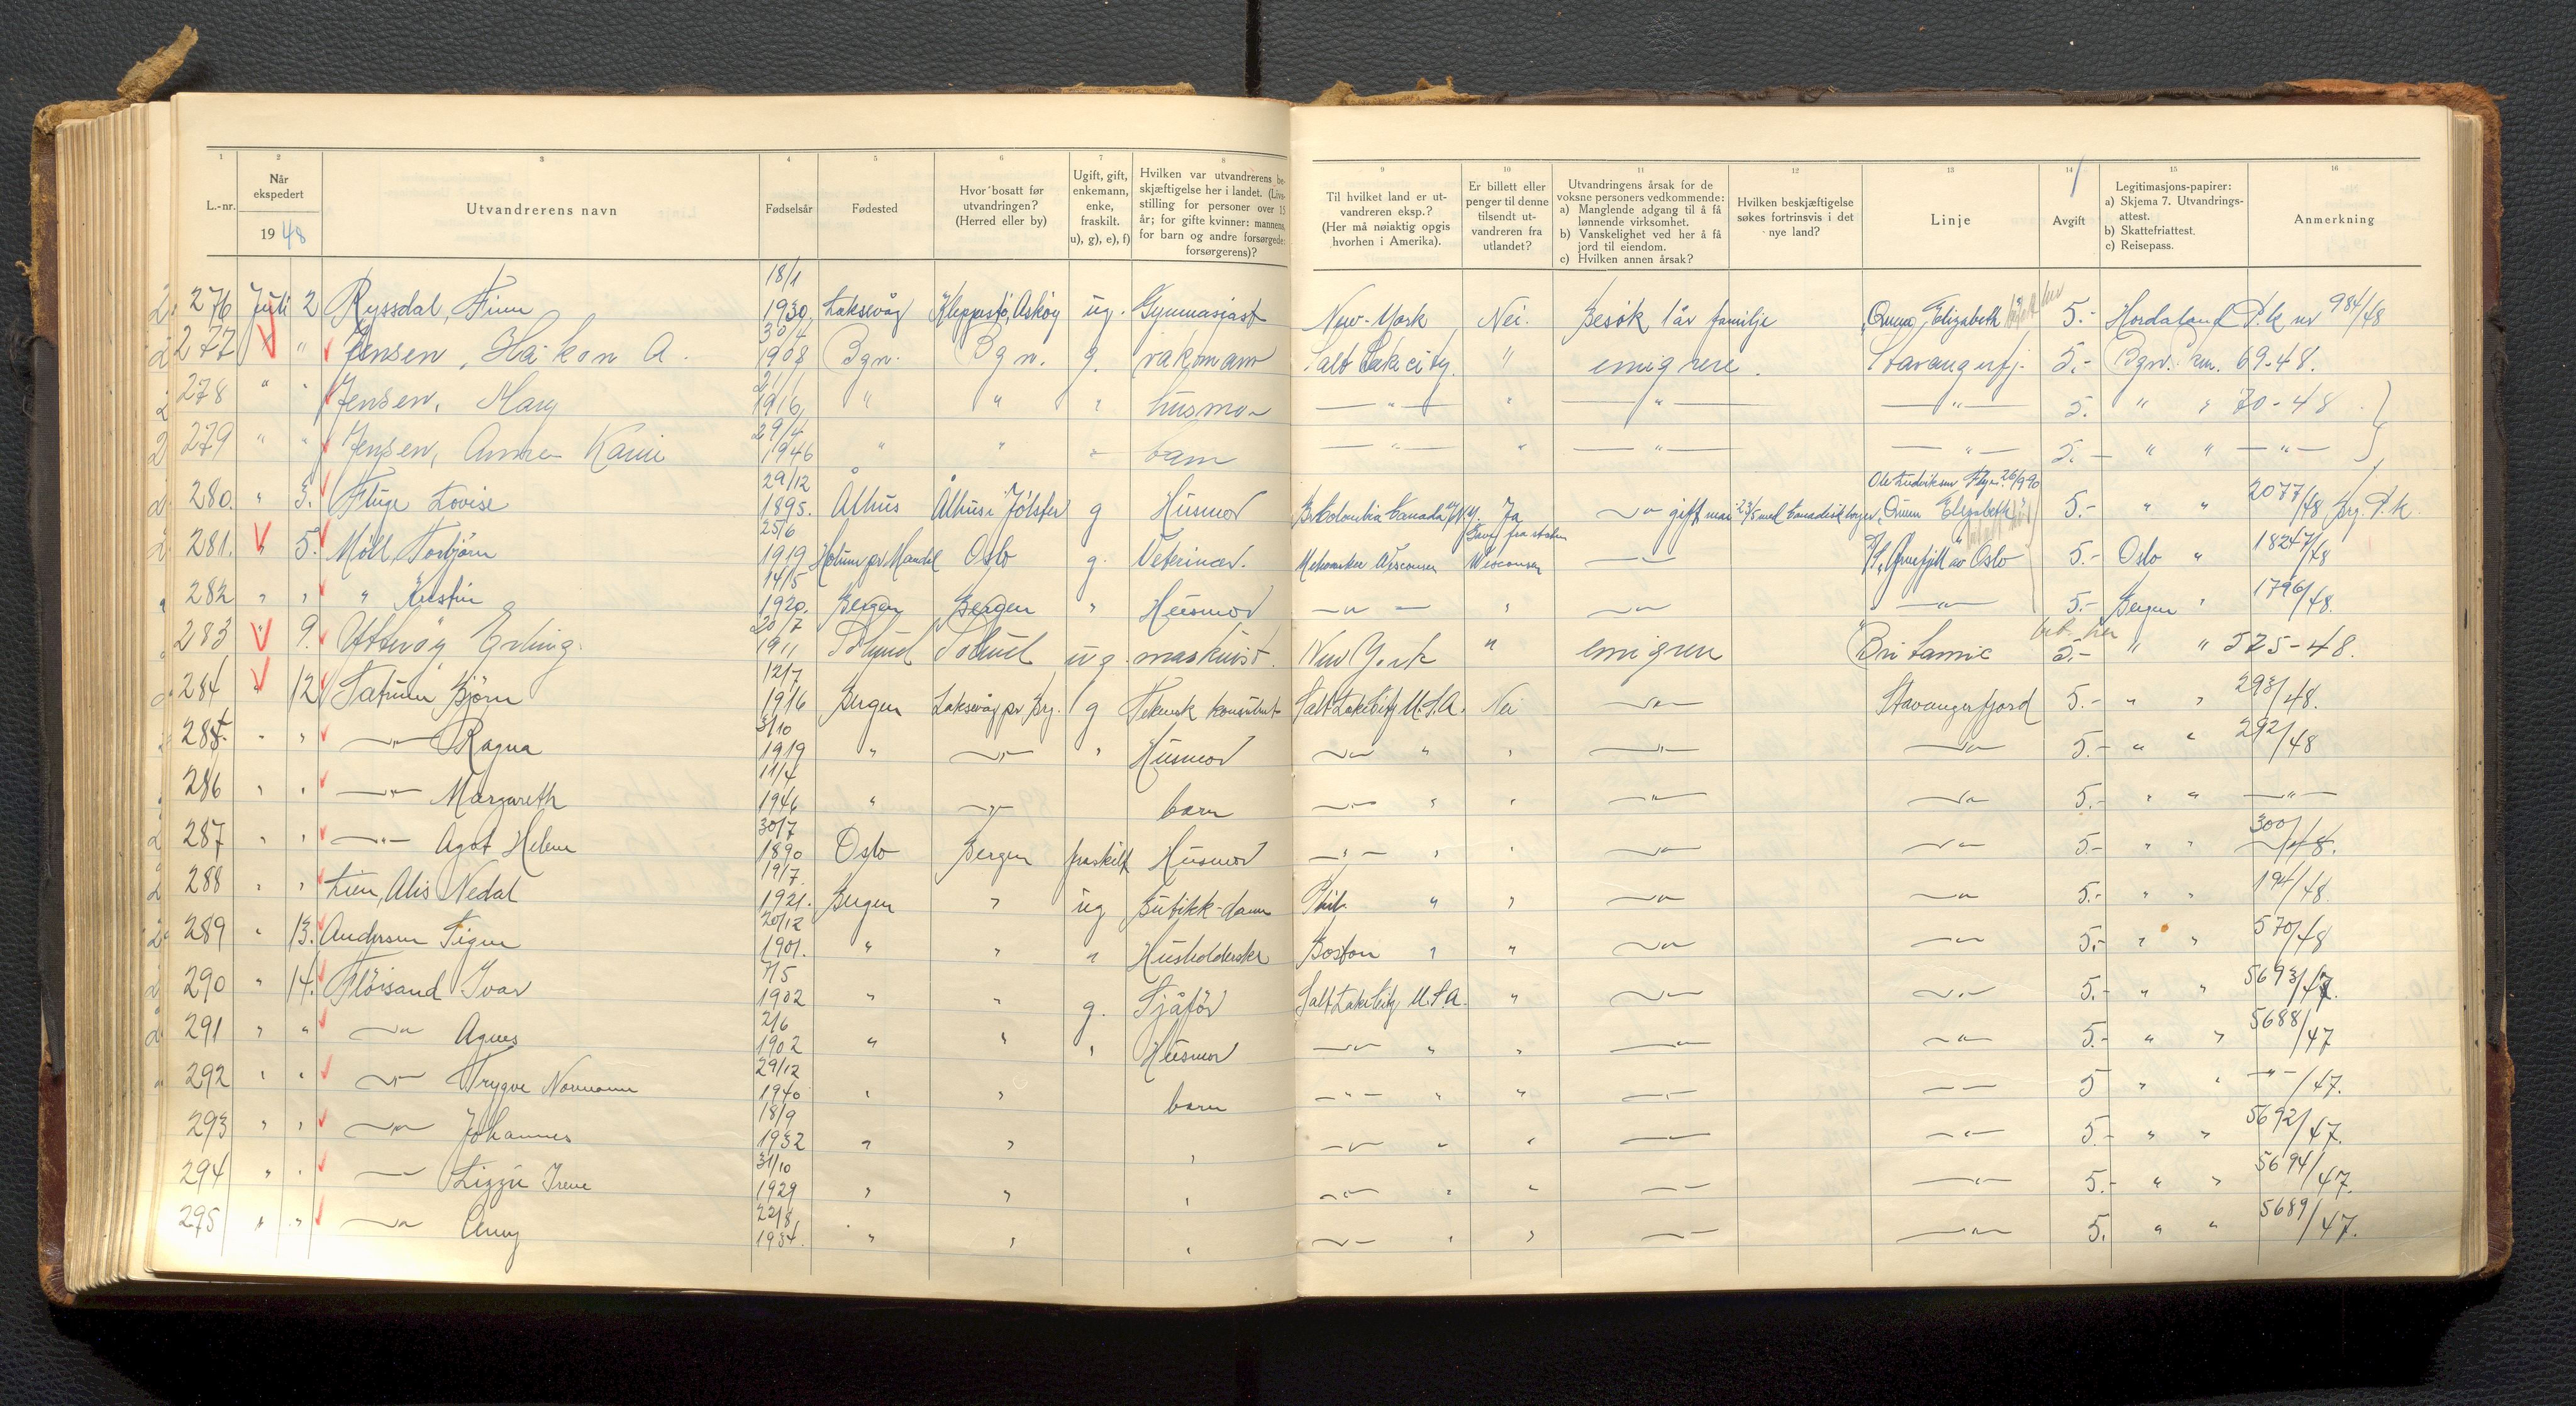 1 2 3 4 5 6 7 8
L.-nr. Når ekspedert 1948 Utvandrerens navn Fødselsår Fødested Hvor bosatt før utvandringen? (Herred eller by) Ugift, gift, enkemann, enke, fraskilt. u), g), e), f) Hvilken var utvandrerens be- skjæftigelse her i landet. (Livs- stilling for personer over 15 år; for gifte kvinner: mannens, for barn og andre forsørgede: forsørgerens)?
9 10 11 12 13 14 15 16
Til hvilket land er ut- vandreren eksp.? (Her må nøiaktig opgis hvorhen i Amerika). Er billett eller penger til denne tilsendt ut- vandreren fra utlandet? Utvandringens årsak for de voksne personers vedkommende: a) Manglende adgang til å få lønnende virksomhet. b) Vanskelighet ved her å få jord til eiendom. c) Hvilken annen årsak? Hvilken beskjæftigelse søkes fortrinsvis i det nye land? Linje Avgift Legitimasjons-papirer: a) Skjema 7. Utvandrings- attest. b) Skattefriattest. c) Reisepass. Anmerkning
276 Juli 2 Ryssdal, Finn 18/1 1930 Laksevåg Kleppestø, Askøy ug. Gymnasiast New-York Nei. Besøk 1 år familje "Queen Elizabeth 5.- Hordaland P.k nr 984/48
277 " " Jensen, Håkon A. 30/4 1908 Bgn. Bgn. g. vakmann Salt Lake city. " emigrere. Stavangerfj. 5.- Bgn. 69-48.
278 " " Jensen, Mary 21/1 1916 " " " husmor —"— " —"— —"— 5. " " 70-48
279 " " Jensen, Anne Karin 29/4 1946 " " " barn —"— " —"— —"— 5.- " " —"—
280. " 3. Fluge Lovise 29/12 1895. Ålhus Ålhus i Jølster g Husmor Br. Kolombia Canada Ja —"— gift med Canadisk borger "Queen Elizabeth" 5.- " " 2077/48 Brg. P.k
281. " 5. Moll, Torbjørn 25/6 1919 Holum pr Mandal Oslo g. Veterinær. Wisconsin fra staten Wisconsin —"— av Oslo 5.- Oslo " 18247/48
282 " " " Kirstin 14/5 1920. Bergen Bergen " Husmor —"— " —"— —"— 5.- Bergen " 1796/48.
283 " 9. Erling. 20/7 1911 Solund Solund ug. maskinist. New York " emigrere Britannic 5.- " " 525-48.
284 " 12 Bjørn 12/7 1916 Bergen Laksevåg pr Brg. g Teknisk konsulent Salt Lake City U.S.A. Nei —"— Stavangerfjord 5.- " " 293/48.
285. " " —"— Ragna 3/10 1919 " —"— " Husmor —"— " " —"— —"— 5.- " " 292/48
286 " " —"— Margareth 11/4 1946 " —"— barn —"— " " —"— —"— 5.- " " —"—
287 " " —"— Agot Helene 30/7 1890 Oslo Bergen fraskilt Husmor —"— " " —"— —"— 5.- " " 300/48.
288 " " Lien, Alis Nedal 19/7 1921. Bergen " ug Butikk-dame " " —"— —"— 5.- " " 194/48.
289 " 13. Andersen Signe 20/12 1901. " " " Husholderske Boston " " —"— —"— 5.- " " 570/48
290 " 14. Fløisand Ivar 7/5 1902 " " g. Sjåfør Salt Lake City U.S.A. " —"— —"— 5.- " " 5693/47.
291 " " —"— Agnes 2/6 1902 " " " Husmor —"— " " —"— —"— 5.- " " 5688/47
292 " " —"— Trygve Normann 29/12 1940 " " barn —"— " " —"— —"— 5 " " —"—/47.
293 " " —"— Johannes 18/9 1932 " " " —"— " " —"— —"— 5.- " " 5692/47.
294 " " —"— Lizzie Irene 31/10 1929 " " " —"— " " —"— —"— 5.- " " 5694/47.
295 " " —"— Anny 22/8 1934. " " " —"— " " —"— —"— 5. " " 5689/47.